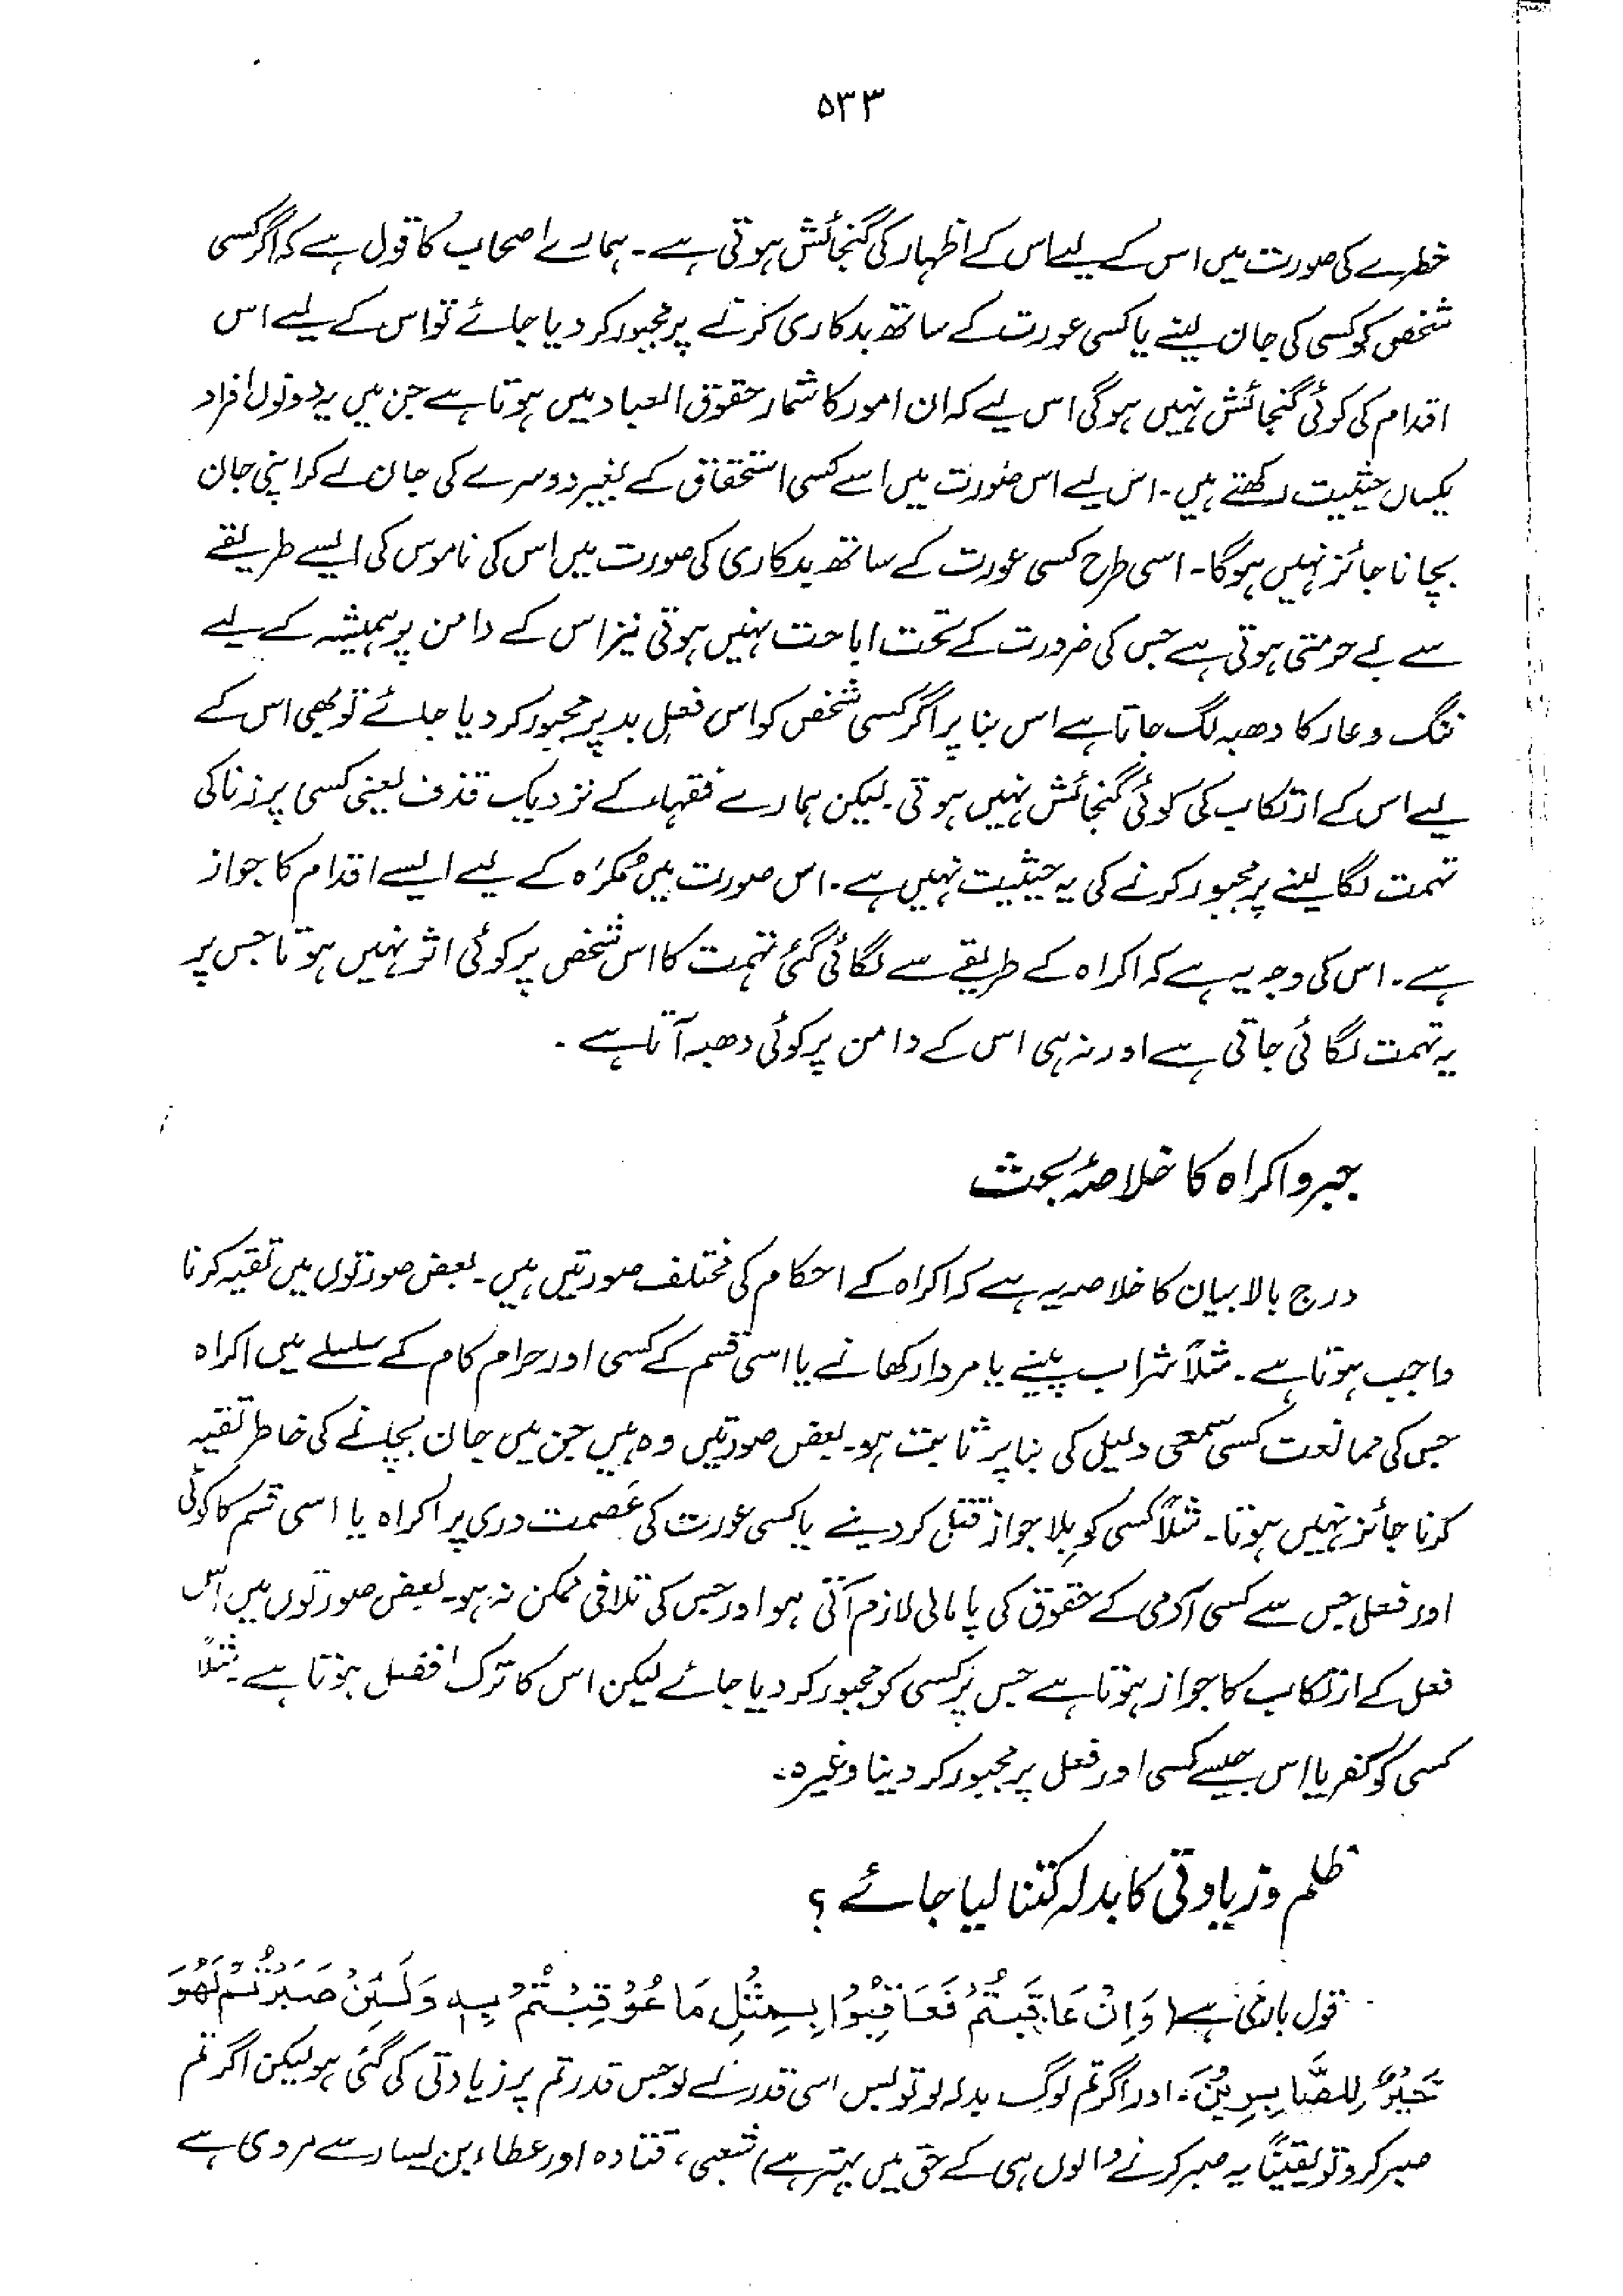 ۵۳۳
خطرے کی صورت میں اس کے لیے اس کے اظہار کی گنجائش ہوتی ہے۔ ہمارے اصحاب کا قول ہے کہ اگر کسی
شخص کو کسی کی جان لینے یا کسی عورت کے ساتھ بدکاری کرنے پر مجبور کر دیا جائے تو اس کے لیے اس
اقدام کی کوئی گنجائش نہیں ہوگی اس لیے کہ ان امور کا شمار حقوق العباد میں ہوتا ہے جن میں یہ دونوں افراد
یکساں حیثیت رکھتے ہیں۔ اس لیے اس صورت میں اسے کسی استحقاق کے بغیر دوسرے کی جان لے کر اپنی جان
بچانا جائز نہیں ہوگا۔ اسی طرح کسی عورت کے ساتھ بدکاری کی صورت میں اس کی ناموس کی ایسے طریقے
سے بے حرمتی ہوتی ہے جس کی ضرورت کے تحت اباحت نہیں ہوتی نیز اس کے دامن پر ہمیشہ کے لیے
ننگ و عار کا دھبہ لگ جاتا ہے اس بنا پر اگر کسی شخص کو اس فعلِ بد پر مجبور کر دیا جائے تو بھی اس کے
لیے اس کے ارتکاب کی کوئی گنجائش نہیں ہوتی۔ لیکن ہمارے فقہاء کے نزدیک قذف یعنی کسی پر زنا کی
تہمت لگا لینے پر مجبور کرنے کی یہ حیثیت نہیں ہے۔ اس صورت میں مُکرَہ کے لیے ایسے اقدام کا جواز
ہے۔ اس کی وجہ یہ ہے کہ اکراہ کے طریقے سے لگائی گئی تہمت کا اس شخص پر کوئی اثر نہیں ہوتا جس پر
یہ تہمت لگائی جاتی ہے اور نہ ہی اس کے دامن پر کوئی دھبہ آتا ہے۔
جبر و اکراہ کا خلاصۂ بحث
درج بالا بیان کا خلاصہ یہ ہے کہ اکراہ کے احکام کی مختلف صورتیں ہیں۔ بعض صورتوں میں تقیہ کرنا
واجب ہوتا ہے۔ مثلاً شراب پینے یا مردار کھانے یا اسی قسم کے کسی اور حرام کام کے سلسلے میں اکراہ
جس کی ممانعت کسی سمعی دلیل کی بنا پر ثابت ہو۔ بعض صورتیں وہ ہیں جن میں جان بچانے کی خاطر تقیہ
کرنا جائز نہیں ہوتا۔ مثلاً کسی کو بِلا جواز قتل کر دینے یا کسی عورت کی عَصمت دری پر اکراہ یا اسی قسم کا کوئی
اور فعل جس سے کسی آدمی کے حقوق کی پامالی لازم آتی ہو اور جس کی تلافی ممکن نہ ہو۔ بعض صورتوں میں اس
فعل کے ارتکاب کا جواز ہوتا ہے جس پر کسی کو مجبور کر دیا جائے لیکن اس کا ترک افضل ہوتا ہے مثلاً
کسی کو کفر یا اس جیسے کسی اور فعل پر مجبور کر دینا وغیرہ۔
ظلم و زیادتی کا بدلہ کتنا لیا جائے؟
قول باری ہے (وَاِنْ عَاقَبْتُمْ فَعَاقِبُوْا بِمِثْلِ مَا عُوْقِبْتُمْ بِهٖ وَلَئِنْ صَبَرْتُمْ لَهُوَ
خَيْرٌ لِلصَّابِرِيْنَ۔ اور اگر تم لوگ بدلہ لو تو بس اسی قدر لے لو جس قدر تم پر زیادتی کی گئی ہو لیکن اگر تم
صبر کرو تو یقیناً یہ صبر کرنے والوں ہی کے حق میں بہتر ہے) شعبی، قتادہ اور عطاء بن یسار سے مروی ہے